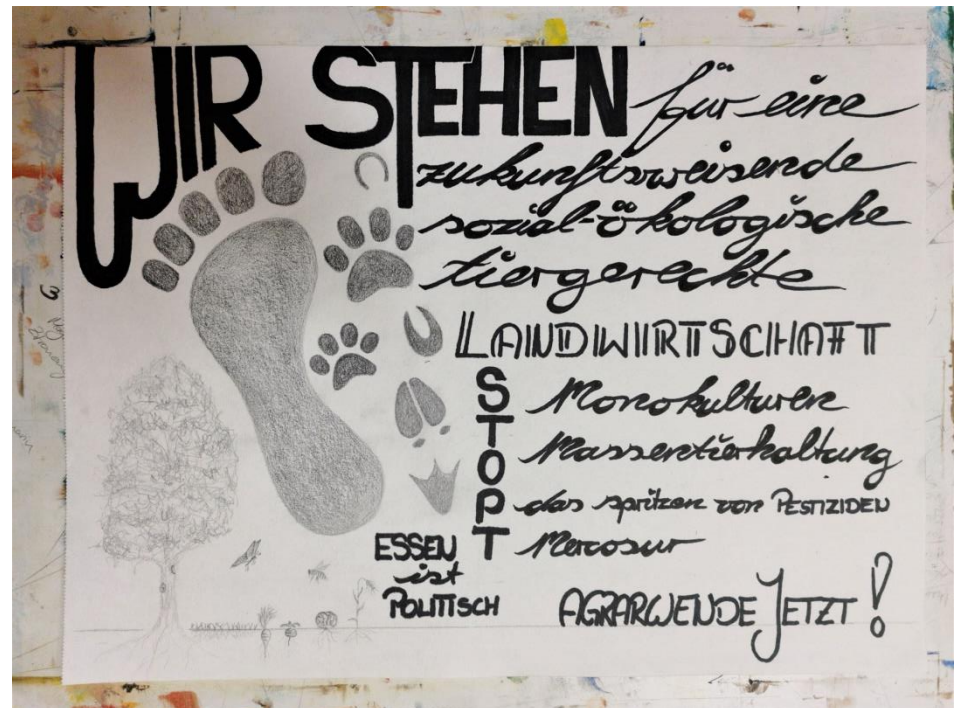 WIR STEHEN für eine
zukunftsweisende
sozial-ökologische
tiergerechte
LANDWIRTSCHAFT
STOPT
Monokulturen
Massentierhaltung
das spritzen von PESTIZIDEN
Mercosur
ESSEN
ist
POLITISCH
AGRARWENDE JETZT!